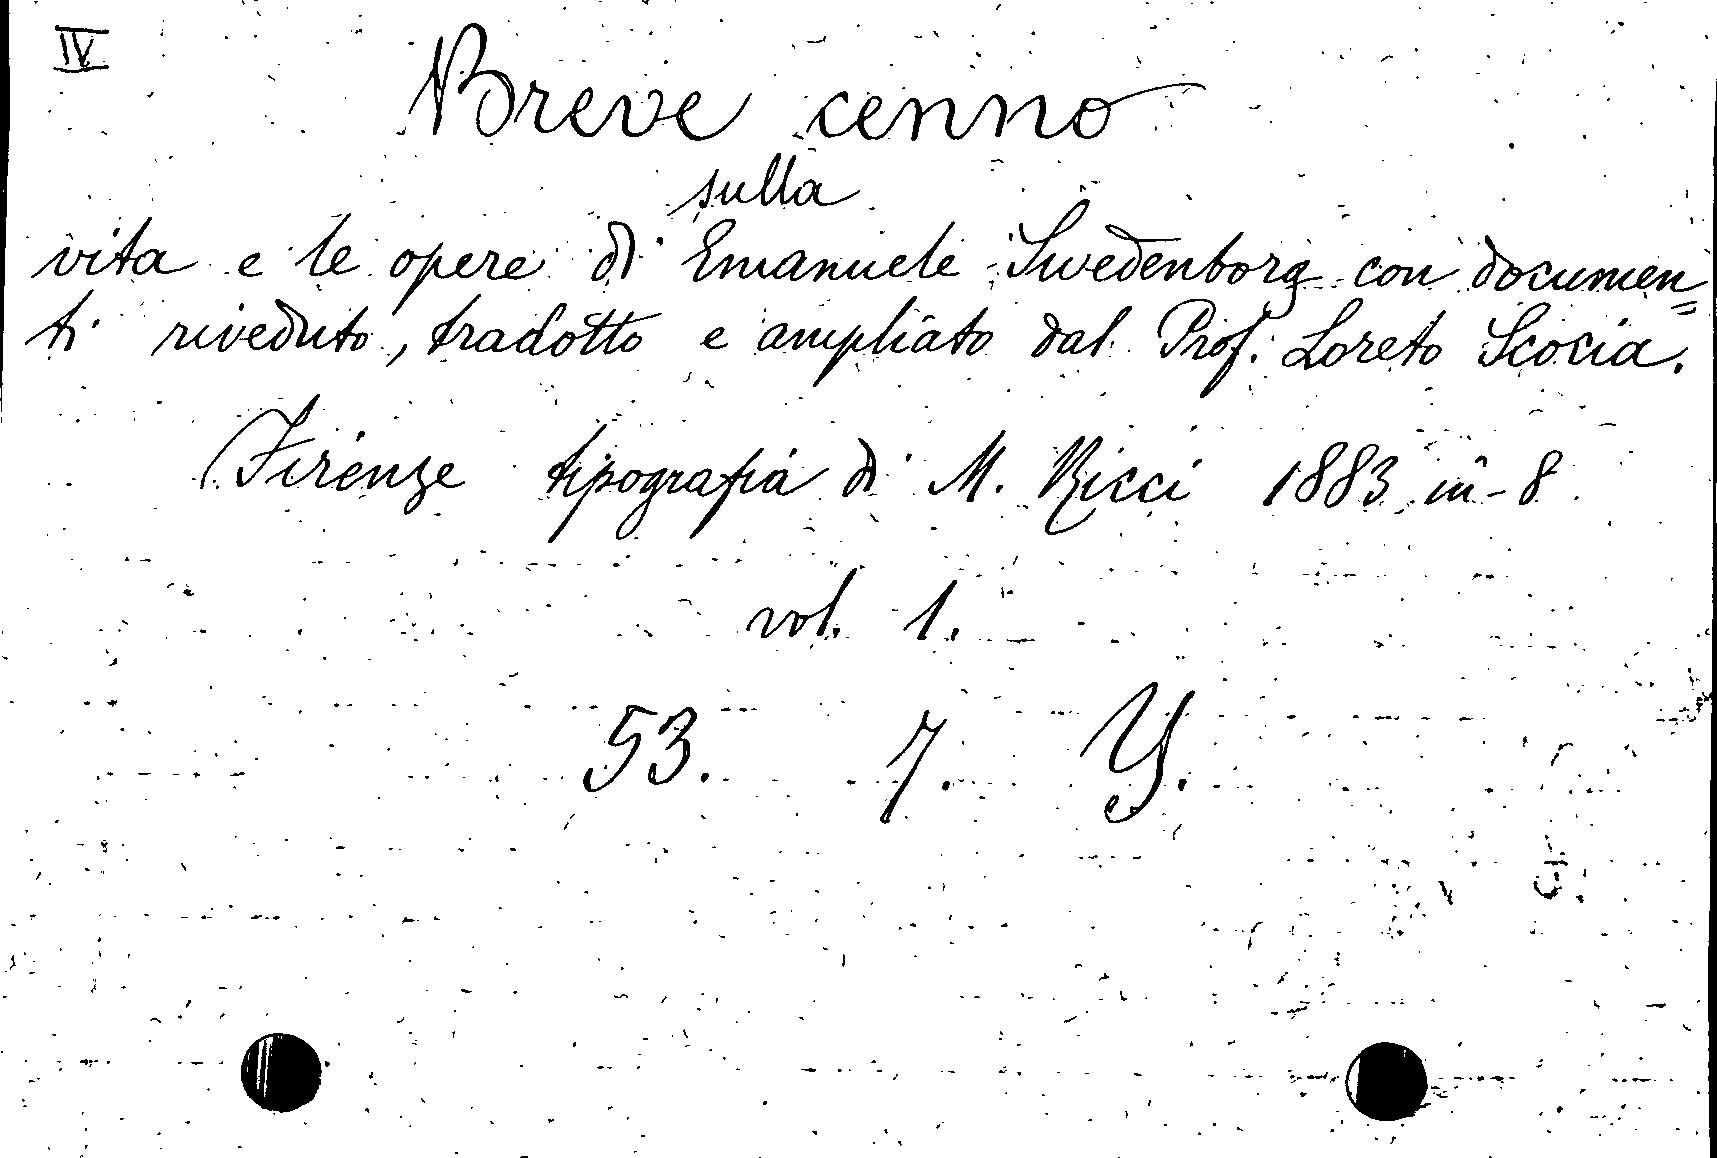 IV
Breve cenno
sulla
vita e le opere di Emanuele Swedenborg con documen=
ti riveduto, tradotto e ampliato dal Prof. Loreto Scocia.
Firenze tipografia di M. Ricci 1883 in-8.
vol. 1.
53. 7. Y.